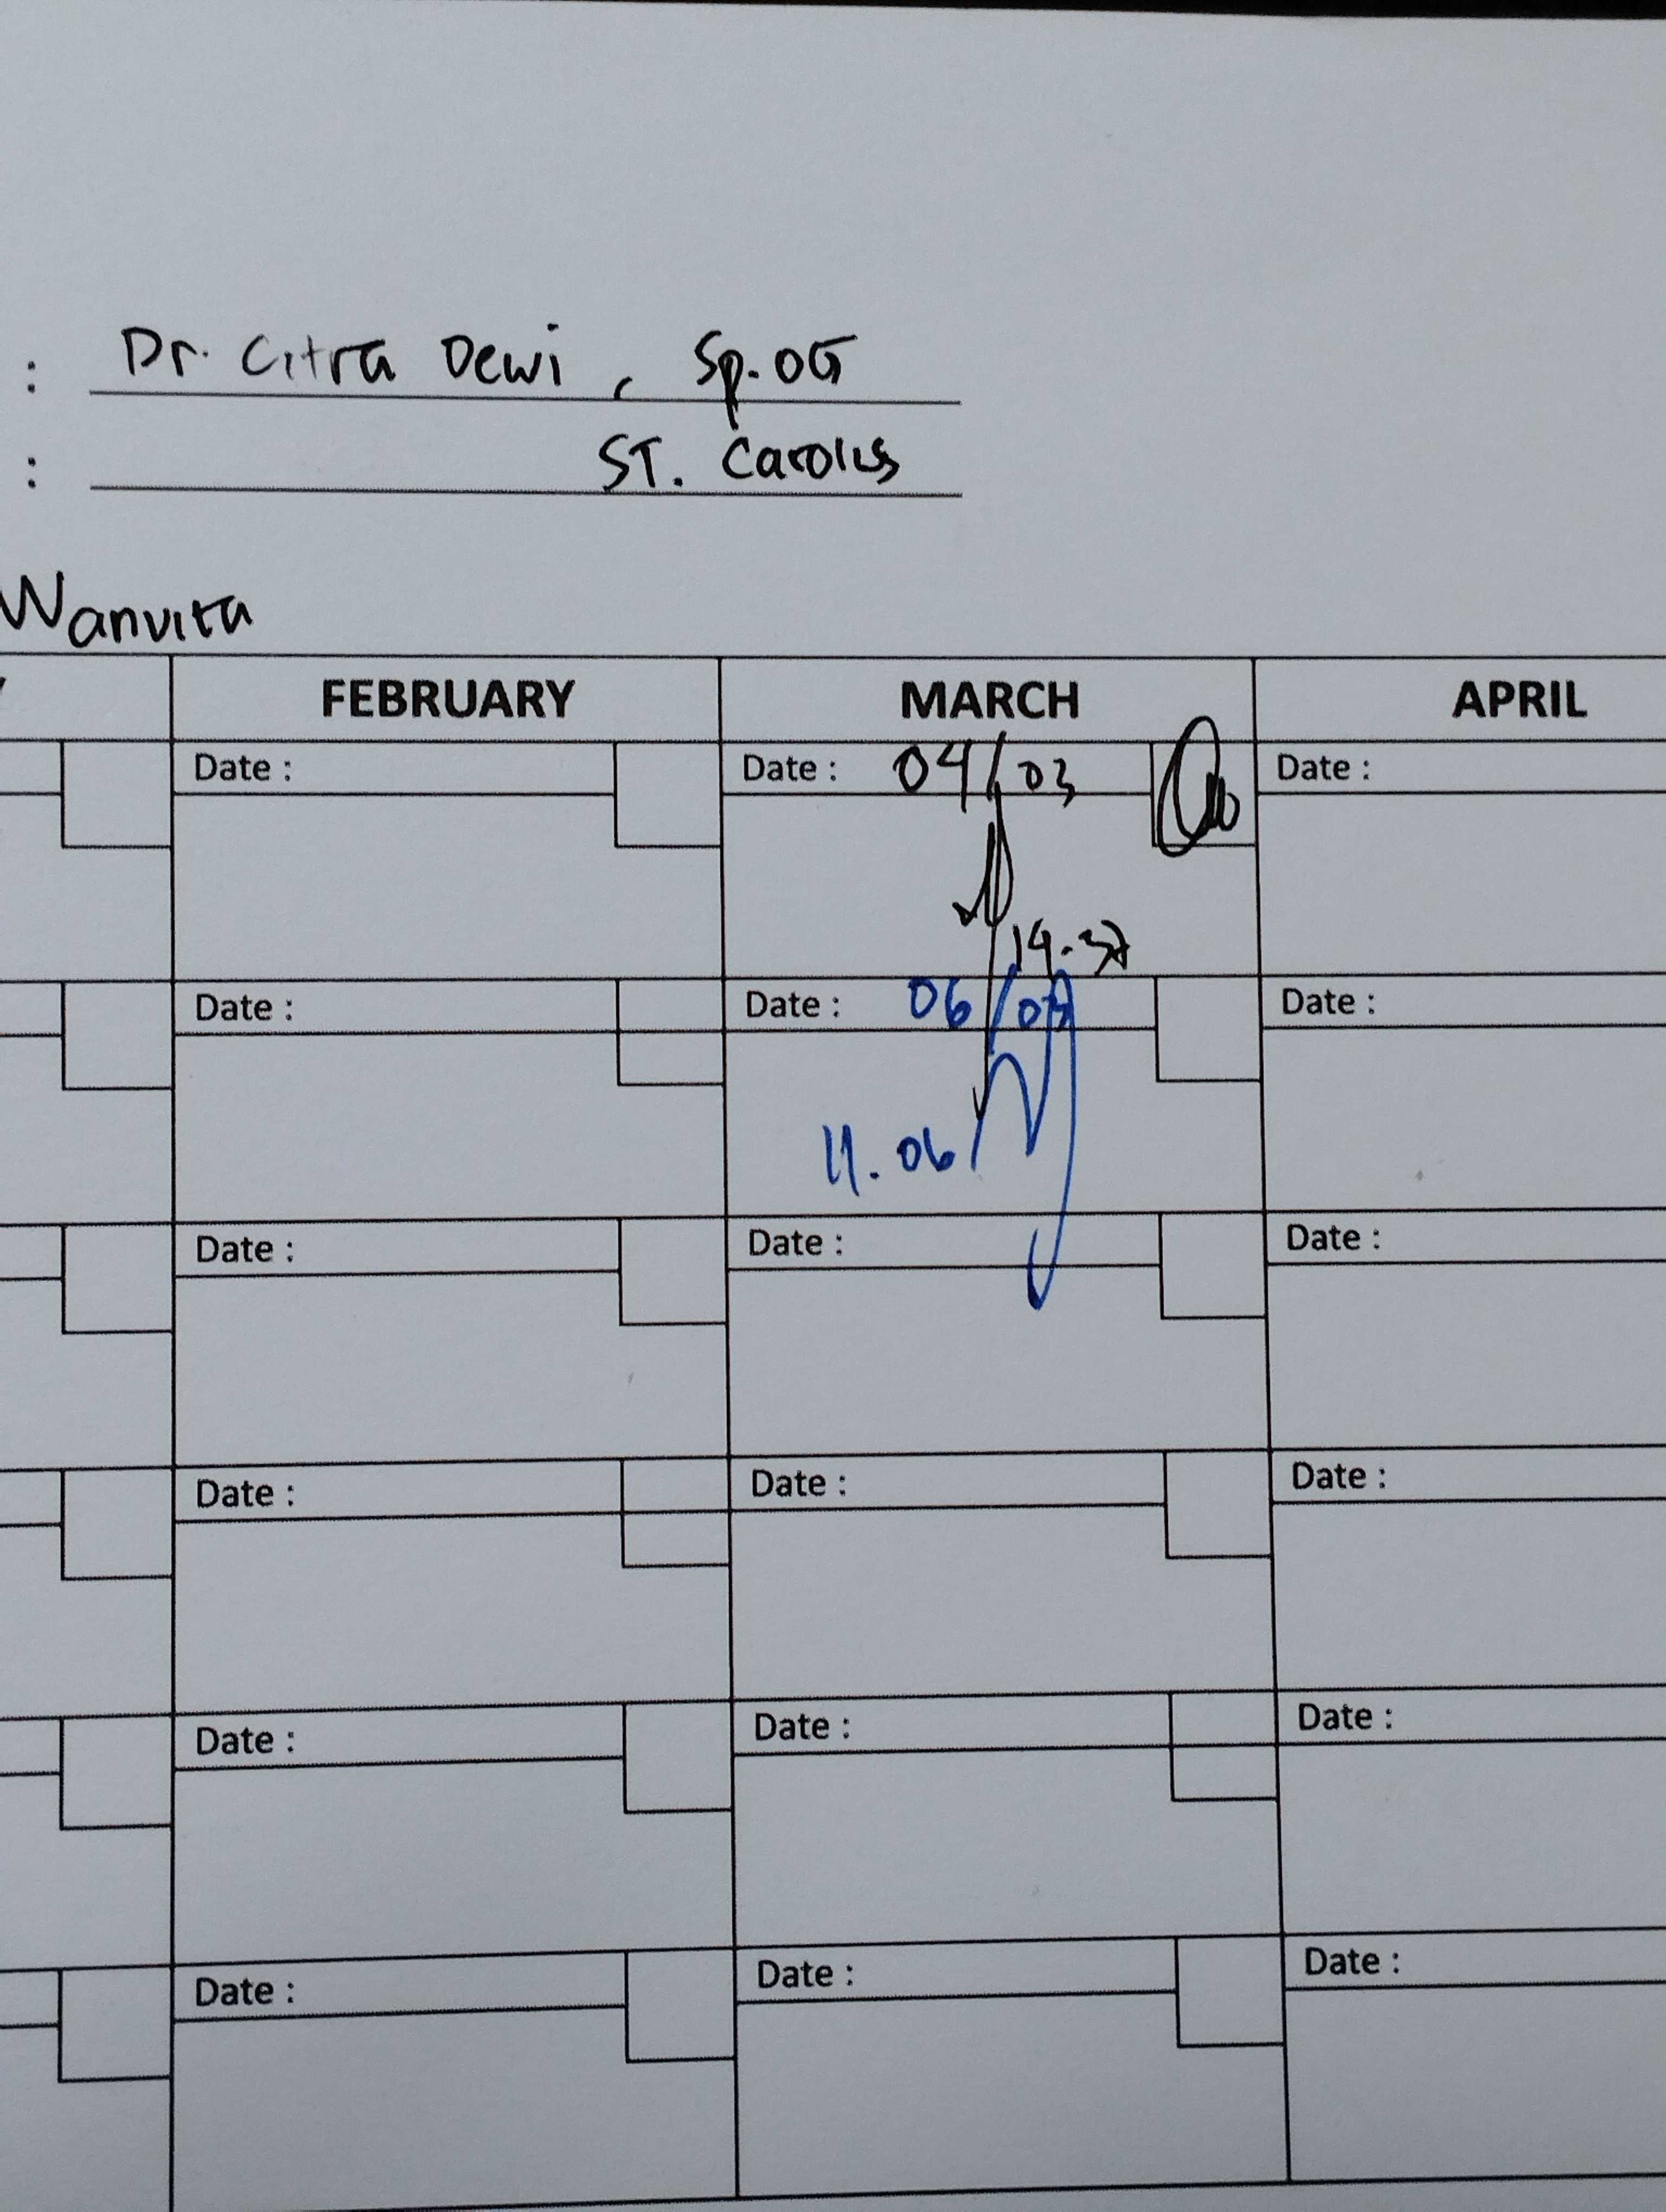 : Dr. Citra Dewi, Sp.OG
: ST. Carolus
Wanvita
FEBRUARY MARCH APRIL
Date : Date : 04/03 Date :
14.37
Date : Date : 06/03 Date :
11.06
Date : Date : Date :
Date : Date : Date :
Date : Date : Date :
Date : Date : Date :